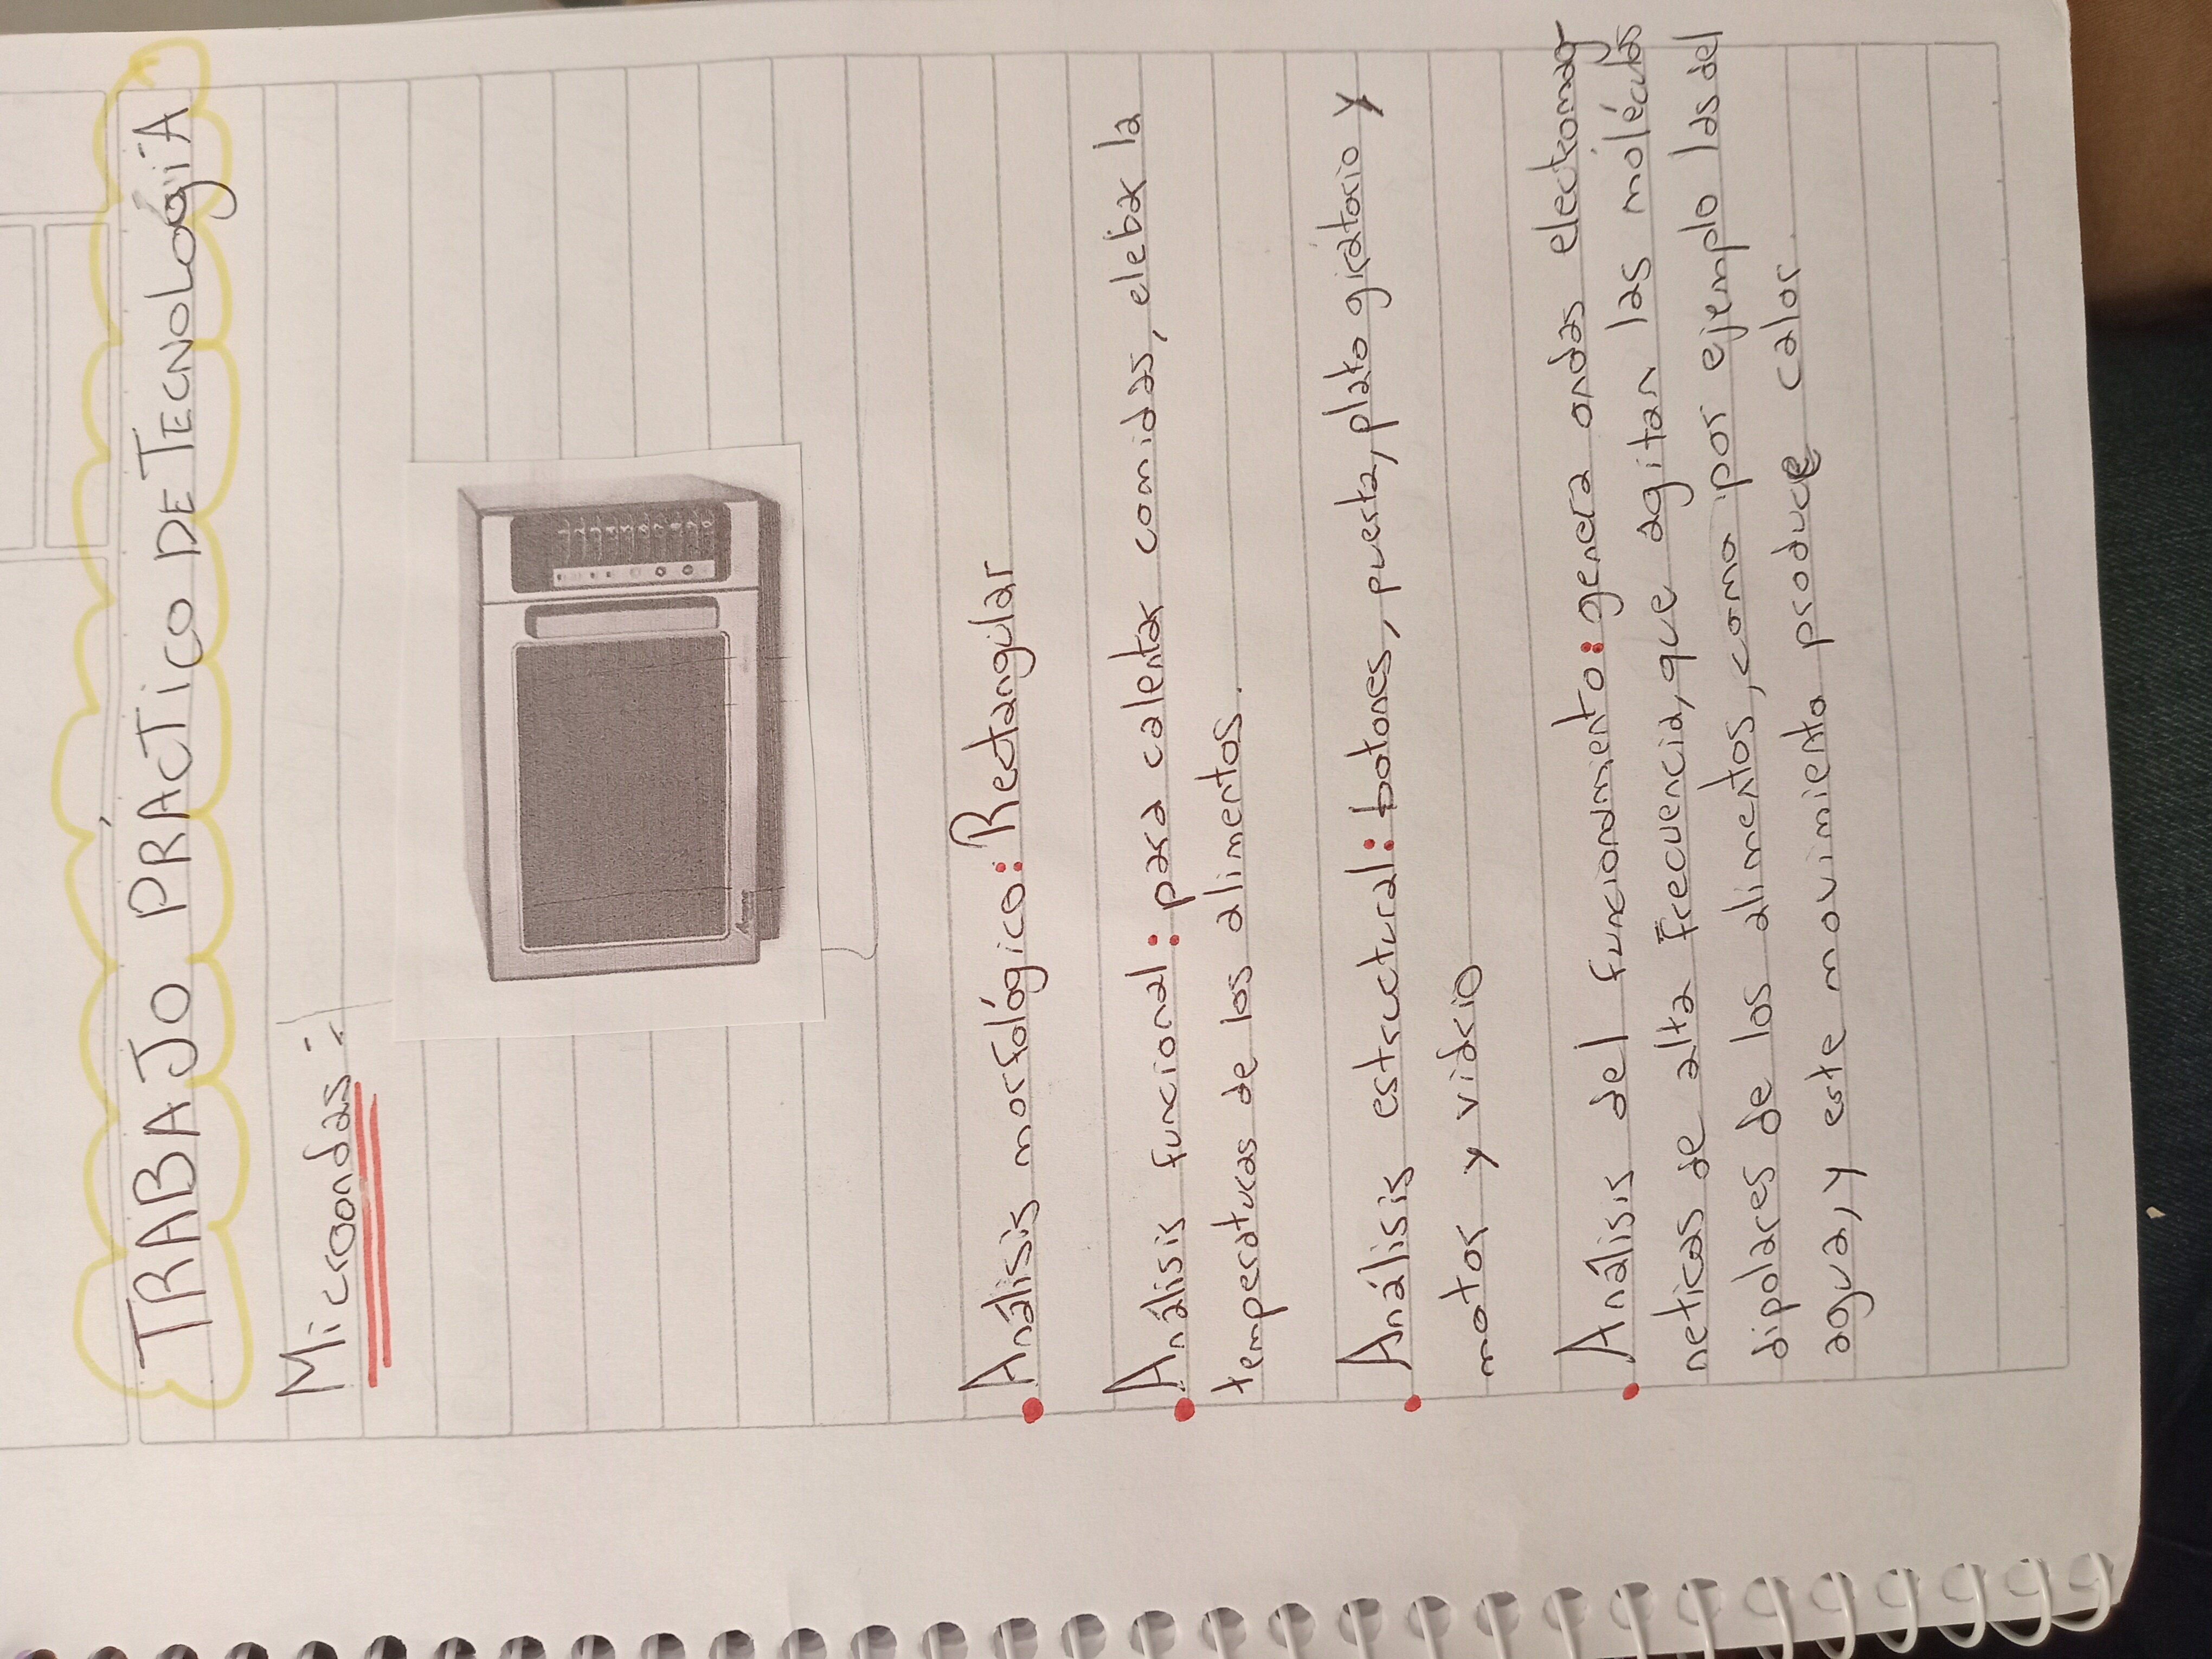 TRABAJO PRÁCTICO DE TECNOLÓGIA
Microondas:
Análisis morfológico: Rectangular
Análisis funcional: para calentar comidas, elebar la
temperaturas de los alimentos.
Análisis estructural: botones, puerta, plato girátorio y
motor y vidrio
Análisis del funcionamiento: genera ondas electomag
neticas de alta frecuencia, que agitan las moléculas
dipolares de los alimentos, como por ejemplo las del
agua, y este movimiento produce calor.